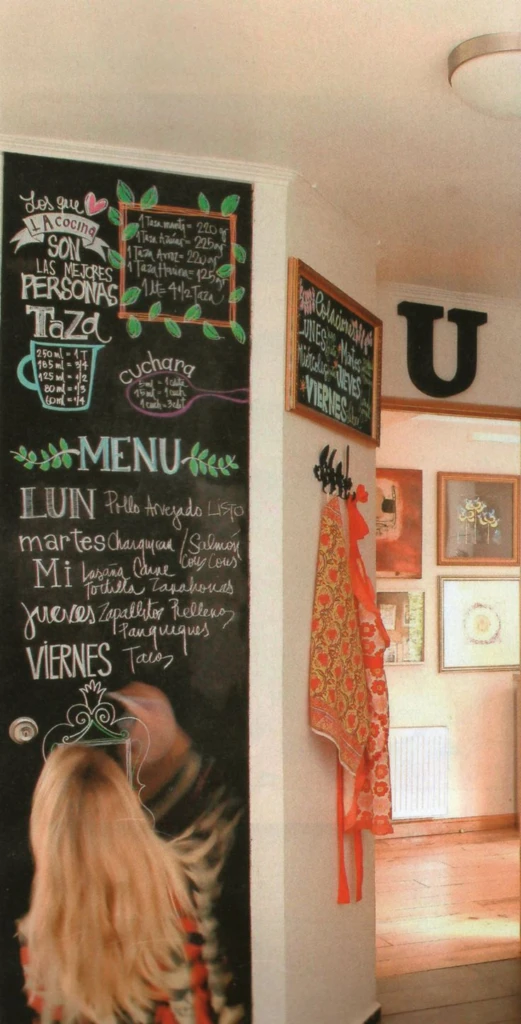 Los que
LA cocina
SON
LAS MEJORES
PERSONAS
1 Taza manteq = 220 gr
1 Taza Azúcar = 225 gr
1 Taza Arroz = 220 gr
1 Taza Harina = 125 gr
1 Lt = 4 1/2 Taza
TAZA
250 ml = 1 T
185 ml = 3/4
125 ml = 1/2
80 ml = 1/3
60 ml = 1/4
cuchara
MENU
LUN Pollo Arvejado LISTO
martes Charquican / Salmón
Cous Cous
Mi Lasana Carne
Tortilla Zanahorias
jueves Zapallitos Rellenos
Panqueques
VIERNES Tacos
Colaciones
LUNES
Martes
Miércoles
JUEVES
VIERNES
U